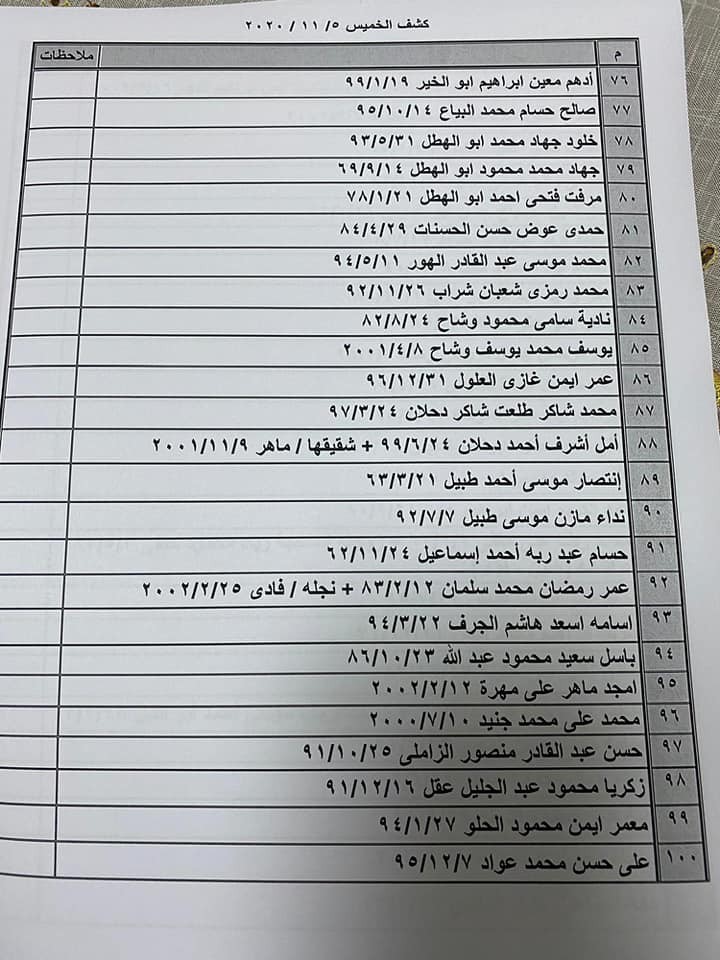 كشف الخميس ٥/ ١١ / ٢٠٢٠
م ملاحظات
٧٦ أدهم معين ابراهيم ابو الخير ٩٩/١/١٩
٧٧ صالح حسام محمد البياع ٩٥/١٠/١٤
٧٨ خلود جهاد محمد ابو الهطل ٩٣/٥/٣١
٧٩ جهاد محمد محمود ابو الهطل ٦٩/٩/١٤
٨٠ مرفت فتحى احمد ابو الهطل ٧٨/١/٢١
٨١ حمدى عوض حسن الحسنات ٨٤/٤/٢٩
٨٢ محمد موسى عبد القادر الهور ٩٤/٥/١١
٨٣ محمد رمزى شعبان شراب ٩٢/١١/٢٦
٨٤ نادية سامى محمود وشاح ٨٢/٨/٢٤
٨٥ يوسف محمد يوسف وشاح ٢٠٠١/٤/٨
٨٦ عمر ايمن غازى العلول ٩٦/١٢/٣١
٨٧ محمد شاكر طلعت شاكر دحلان ٩٧/٣/٢٤
٨٨ أمل أشرف أحمد دحلان ٩٩/٦/٢٤ + شقيقها / ماهر ٢٠٠١/١١/٩
٨٩ إنتصار موسى أحمد طبيل ٦٣/٣/٢١
٩٠ نداء مازن موسى طبيل ٩٢/٧/٧
٩١ حسام عبد ربه أحمد إسماعيل ٦٢/١١/٢٤
٩٢ عمر رمضان محمد سلمان ٨٣/٢/١٢ + نجله / فادى ٢٠٠٢/٢/٢٥
٩٣ اسامه اسعد هاشم الجرف ٩٤/٣/٢٢
٩٤ باسل سعيد محمود عبد الله ٨٦/١٠/٢٣
٩٥ امجد ماهر على مهرة ٢٠٠٢/٢/١٢
٩٦ محمد على محمد جنيد ٢٠٠٠/٧/١٠
٩٧ حسن عبد القادر منصور الزاملى ٩١/١٠/٢٥
٩٨ زكريا محمود عبد الجليل عقل ٩١/١٢/١٦
٩٩ معمر ايمن محمود الحلو ٩٤/١/٢٧
١٠٠ على حسن محمد عواد ٩٥/١٢/٧